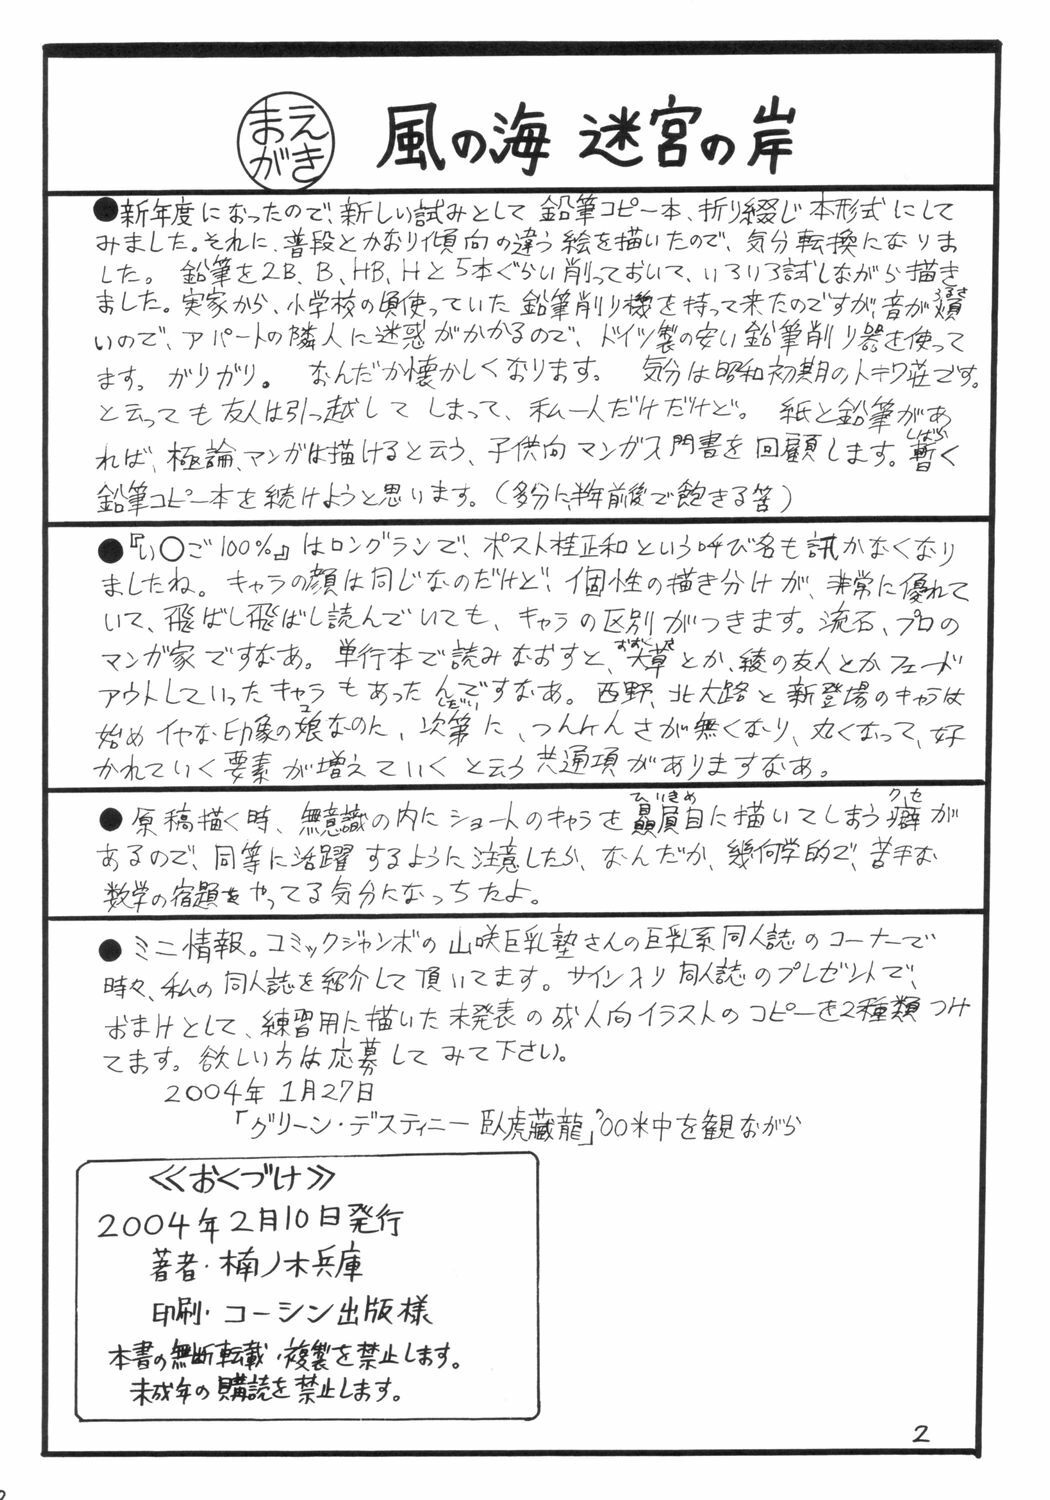 まえがき 風の海 迷宮の岸
●新年度になったので、新しい試みとして 鉛筆コピー本、折り綴じ本形式にして
みました。それに、普段とかなり傾向の違う絵を描いたので、気分転換になりま
した。 鉛筆を2B、B、HB、Hと5本ぐらい削っておいて、いろいろ試しながら描き
ました。実家から、小学校の頃使っていた鉛筆削り機を持って来たのですが、音が煩(うるさ)
いので、アパートの隣人に迷惑がかかるので、ドイツ製の安い鉛筆削り器を使って
ます。ガリガリ。 なんだか懐かしくなります。 気分は昭和初期のトキワ荘です。
と云っても友人は引っ越してしまって、私一人だけだけど。 紙と鉛筆があ
れば、極論、マンガは描けると云う、子供向マンガ入門書を回顧します。暫(しばら)く
鉛筆コピー本を続けようと思います。(多分に半年前後で飽きる筈)
●『い〇ご100%』はロングランで、ポスト桂正和という呼び名も訊かなくなり
ましたね。キャラの顔は同じなのだけど、個性の描き分けが、非常に優れて
いて、飛ばし飛ばし読んでいても、キャラの区別がつきます。流石、プロの
マンガ家ですなあ。単行本で読みなおすと、大草とか、綾の友人とかフェード
アウトしていったキャラもあったんですなあ。西野、北大路と新登場のキャラは
始めイヤな印象の娘(コ)なのに、次第(しだい)に、つんけんさが無くなり、丸くなって、好
かれていく要素が増えていくと云う共通項がありますなあ。
●原稿描く時、無意識の内にショートのキャラを贔屓目(ひいきめ)に描いてしまう癖(クセ)が
あるので、同等に活躍するように注意したら、なんだか、幾何学的で、苦手な
数学の宿題をやってる気分になっちたよ。
●ミニ情報。コミックジャンボの山咲巨乳塾さんの巨乳系同人誌のコーナーで
時々、私の同人誌を紹介して頂いてます。サイン入り同人誌のプレゼントで、
おまけとして、練習用に描いた未発表の成人向イラストのコピーを2種類つけ
てます。欲しい方は応募してみて下さい。
2004年1月27日
「グリーン・デスティニー 臥虎蔵龍」'00米中を観ながら
≪おくづけ≫
2004年2月10日発行
著者・楠ノ木兵庫
印刷・コーシン出版様
本書の無断転載・複製を禁止します。
未成年の購読を禁止します。
2